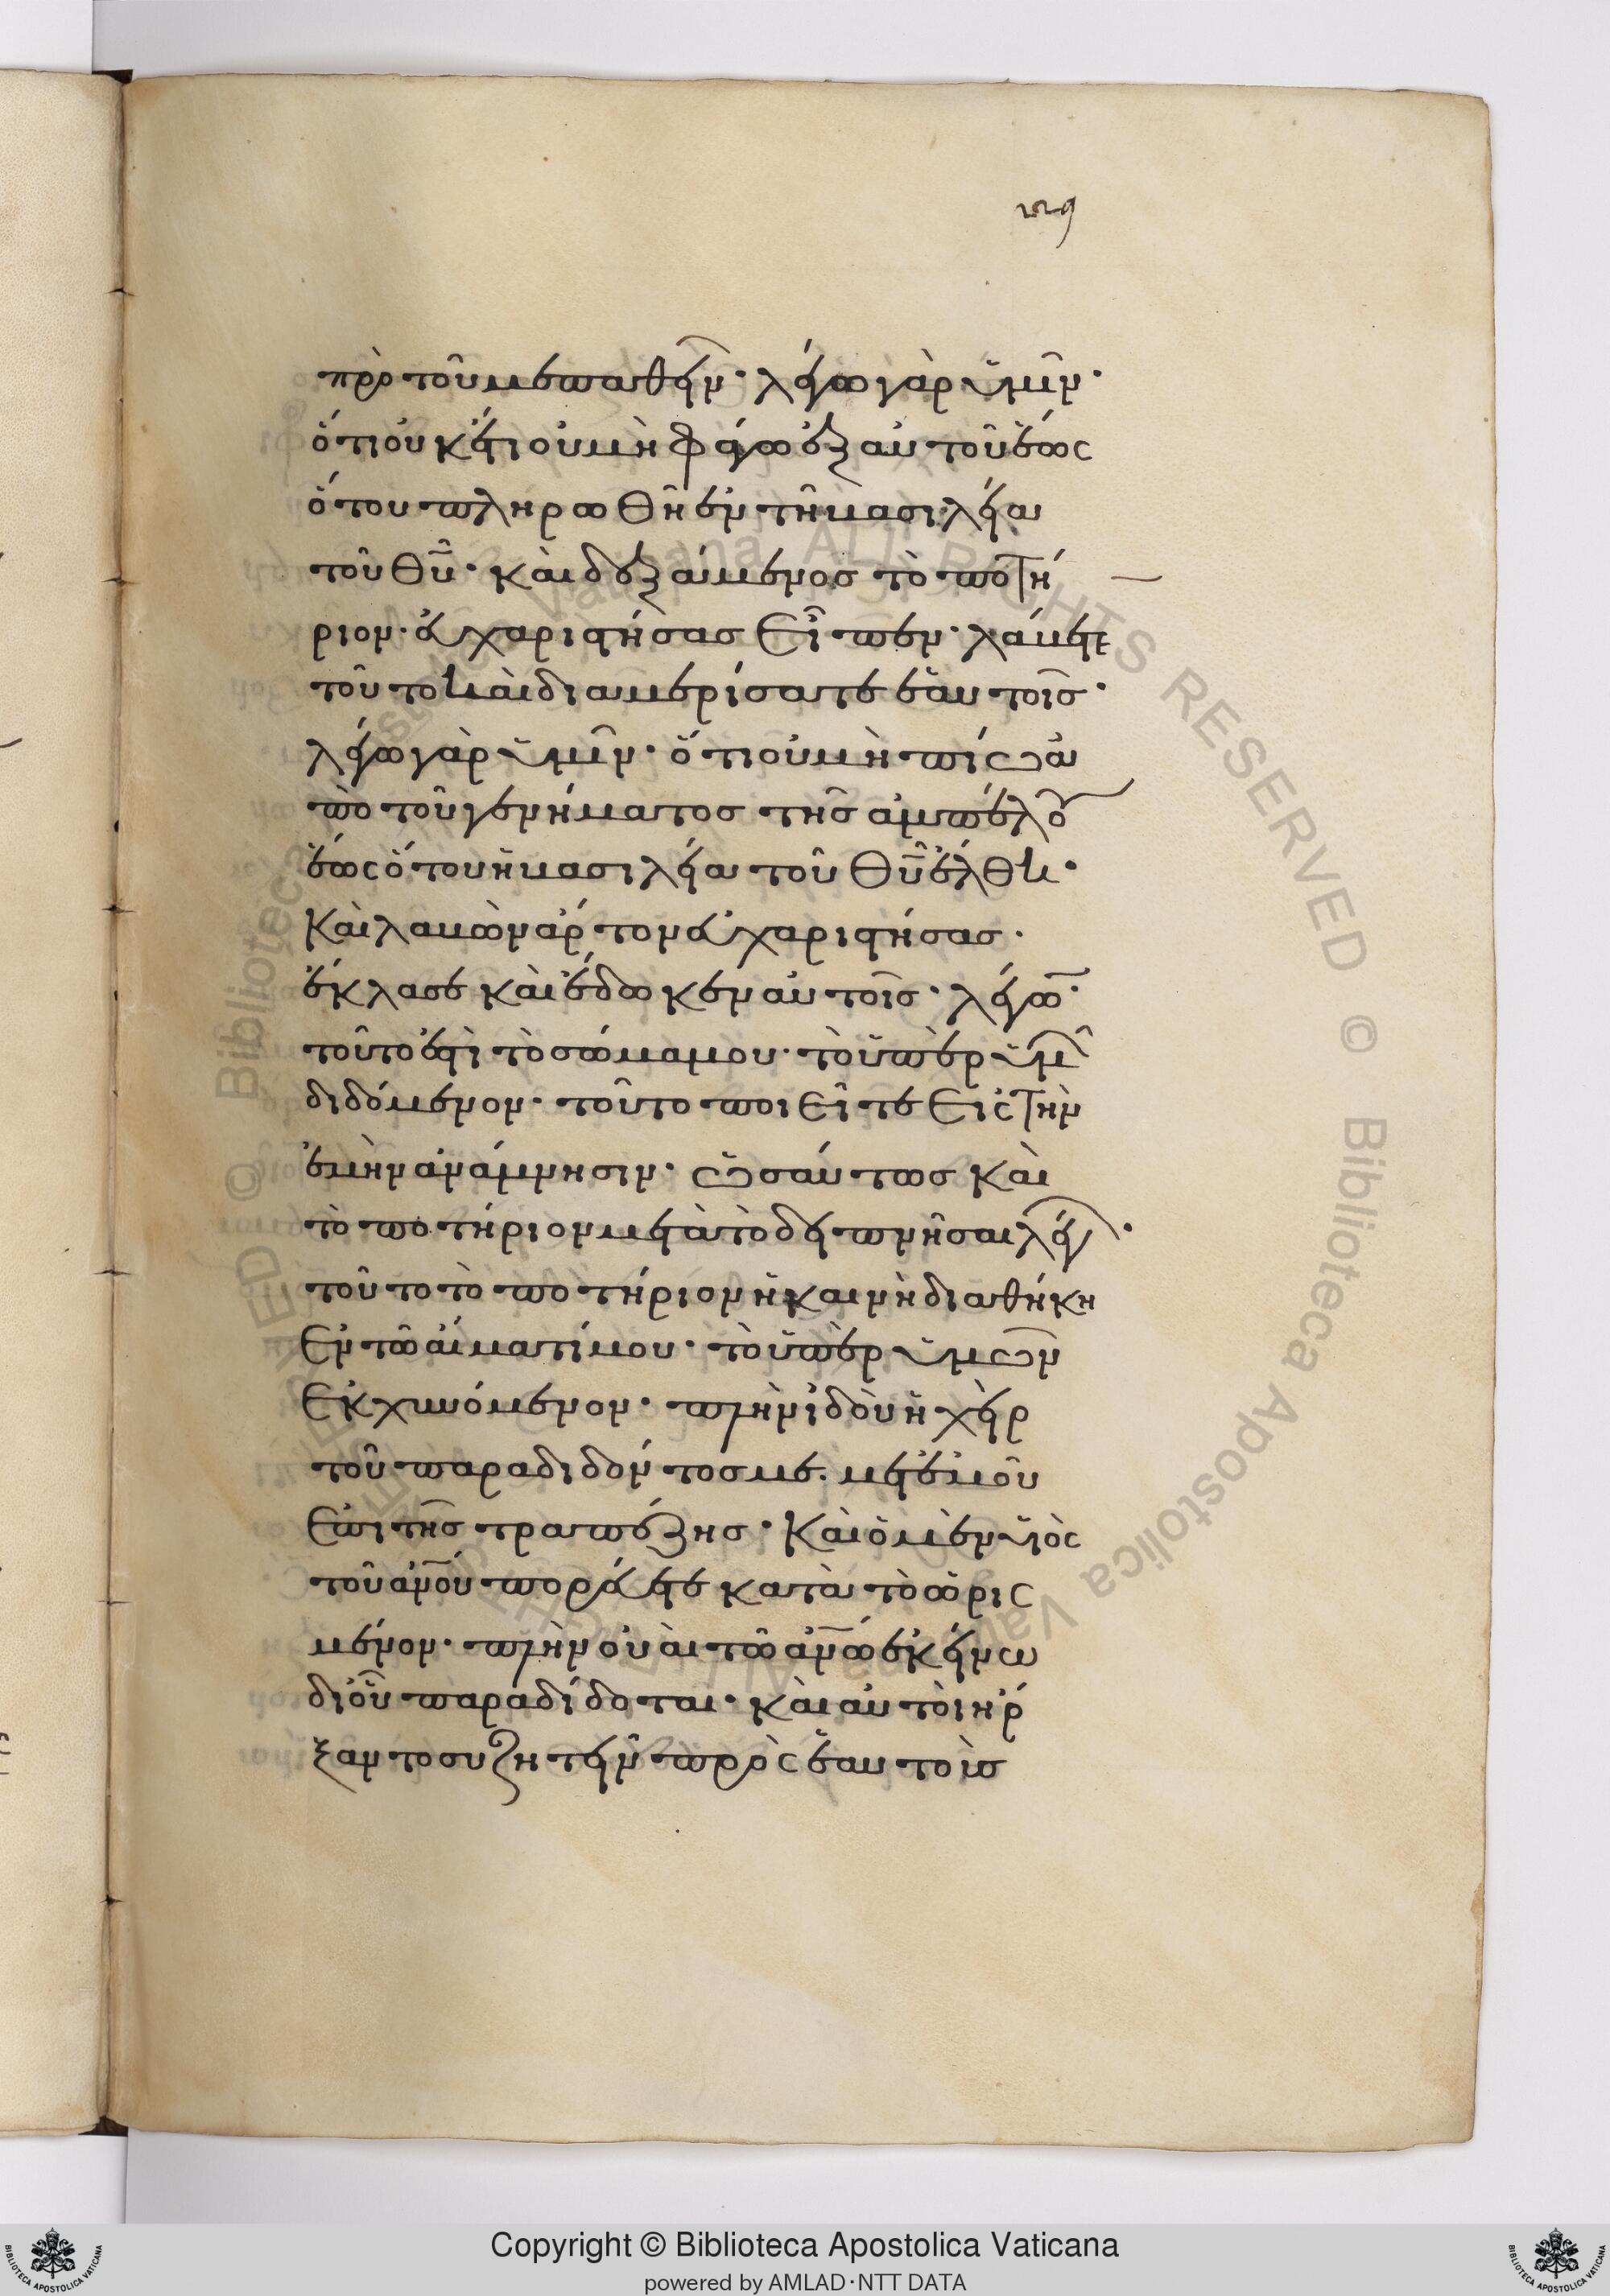 πρὸ τοῦ με παθεῖν· λέγω γὰρ ὑμῖν·
ὅτι οὐκέτι οὐ μὴ φάγω ἐξ αὐτοῦ ἕως
ὅτου πληρωθῆ ἐν τῆ βασιλεία
τοῦ θυ̅· καὶ δεξάμενος τὸ ποτή
ριον· εὐχαριστήσας εἶπεν· λάβετε
τοῦτο καὶ διαμερίσατε ἑαυτοῖς·
λέγω γὰρ ὑμῖν· ὅτι οὐ μὴ πίω ἀ
πὸ τοῦ γενήματος τῆς ἀμπέλου
ἕως ὅτου ἡ βασιλεία τοῦ θυ̅ ἔλθη·
καὶ λαβὼν ἄρτον εὐχαριστήσας·
ἔκλασε καὶ ἔδωκεν αὐτοῖς· λέγω̅·
τοῦτό ἐστι τὸ σῶμα μου· τὸ ὑπὲρ ὑμῶν
διδόμενον· τοῦτο ποιεῖτε εἰς τὴν
ἐμὴν ἀνάμνησιν· ὡσαύτως καὶ
τὸ ποτήριον μετὰ τὸ δειπνῆσαι λέγων·
τοῦτο τὸ ποτήριον ἡ καινὴ διαθήκη
ἐν τῶ αἵματί μου· τὸ ὑπὲρ ὑμῶν
ἐκχυνόμενον· πλὴν ἰδοὺ ἡ χεὶρ
τοῦ παραδιδόντος με· μετ' ἐμοῦ
ἐπὶ τῆς τραπέζης· καὶ ὁ μὲν υἱὸς
τοῦ ἀν̅ου πορεύεται κατὰ τὸ ὡρισ
μένον· πλὴν οὐαὶ τῶ ἀν̅ω ἐκείνω
δι' οὗ παραδίδοται· καὶ αὐτοὶ ἤρ
ξαντο συζητεῖν πρὸς ἑαυτοὺς
Copyright © Biblioteca Apostolica Vaticana
powered by AMLAD·NTT DATA